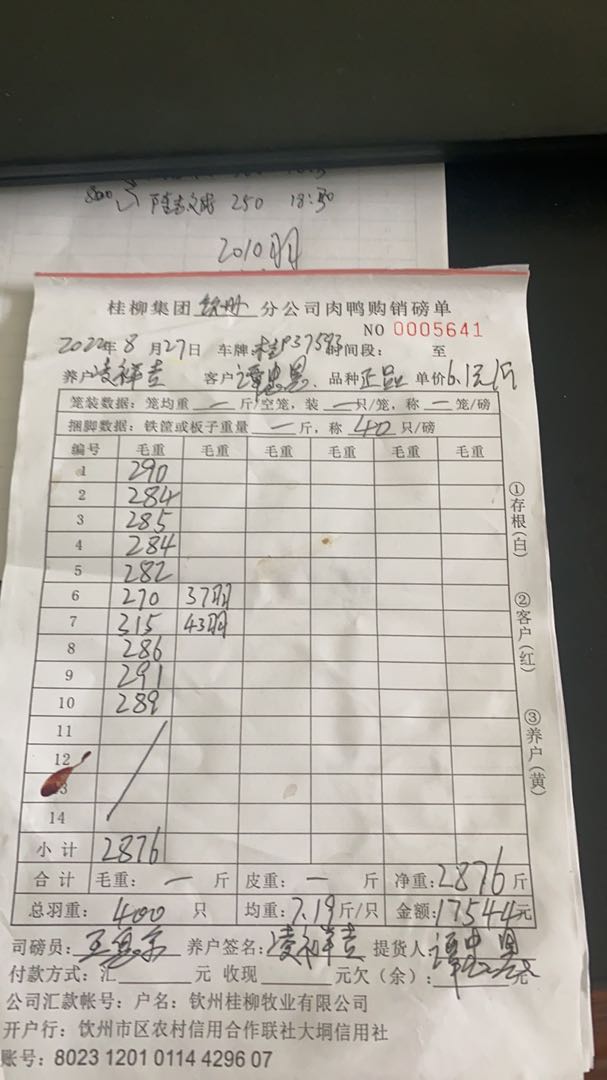 250 18:30
2010羽
桂柳集团 钦州 分公司肉鸭购销磅单
NO 0005641
2022年 8 月27日 车牌: 时间段: 至
养户凌祥吉 客户谭忠恩 品种正品 单价6.1元/斤
笼装数据: 笼均重 一 斤/空笼, 装 一 只/笼, 称 一 笼/磅
捆脚数据: 铁筐或板子重量 一 斤, 称 40 只/磅
编号 毛重 毛重 毛重 毛重 毛重 毛重
1 290
2 284
3 285
4 284
5 282
6 270 37羽
7 315 43羽
8 286
9 291
10 289
11
12
13
14
小计 2876
合计 毛重: 一 斤 皮重: 一 斤 净重: 2876斤
总羽重: 400 只 均重: 7.19斤/只 金额: 17544元
司磅员: 养户签名: 凌祥吉 提货人:
付款方式: 汇 元 收现 元欠(余): 元
公司汇款帐号: 户名: 钦州桂柳牧业有限公司
开户行: 钦州市区农村信用合作联社大垌信用社
账号: 8023 1201 0114 4296 07
①存根(白)
②客户(红)
③养户(黄)